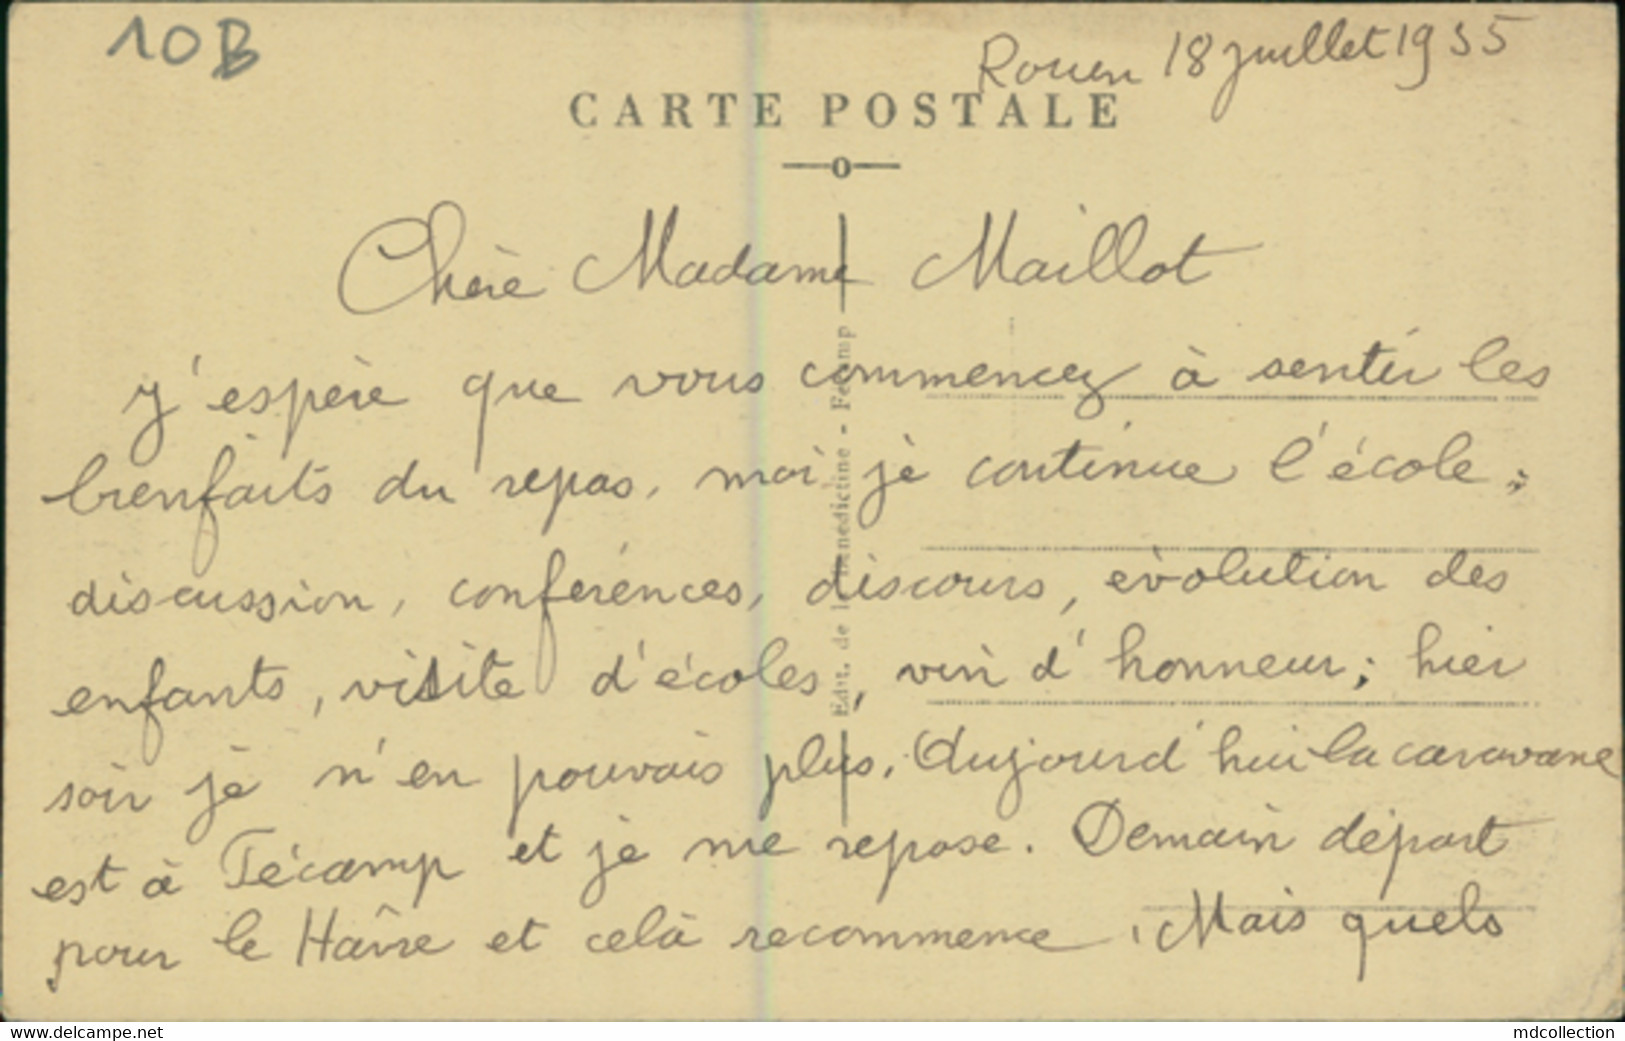 10B
Rouen 18 juillet 1935
CARTE POSTALE
Chère Madame Maillot
J'espère que vous commencez à sentir les
bienfaits du repos, moi je continue l'école ;
discussion, conférences, discours, évolution des
enfants, visite d'écoles, vin d'honneur ; hier
soir je n'en pouvais plus. Aujourd'hui la caravane
est à Fécamp et je me repose. Demain départ
pour le Hâvre et celà recommence. Mais quels
Edit. de la Bénédictine - Fécamp
www.delcampe.net
mdcollection